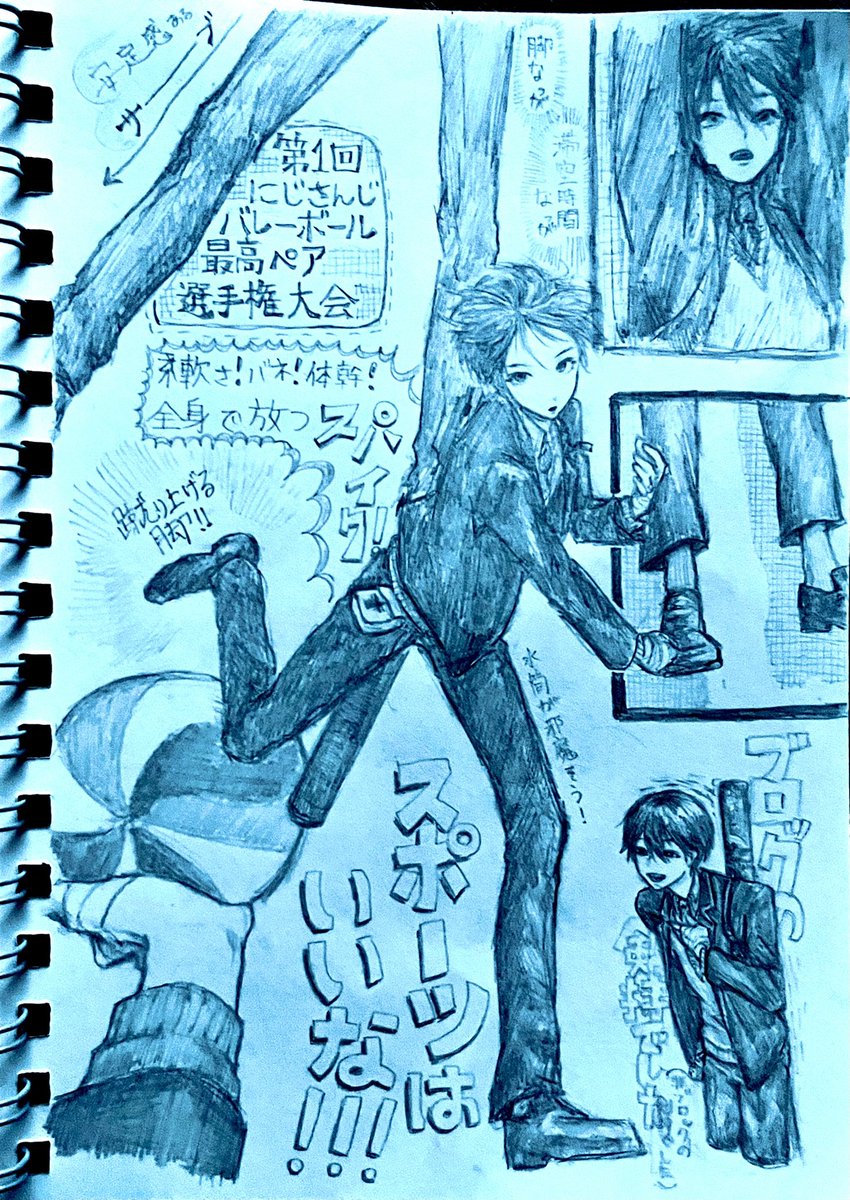 安定感ある
サーブ
脚なが
滞空時間
なが
第1回
にじさんじ
バレーボール
最高ペア
選手権大会
柔軟さ!バネ!体幹!
全身で放つ
スパイク!
蹴り上げる
脚!!
水筒が邪魔そう!
スポーツは
いいな!!!
ブログの